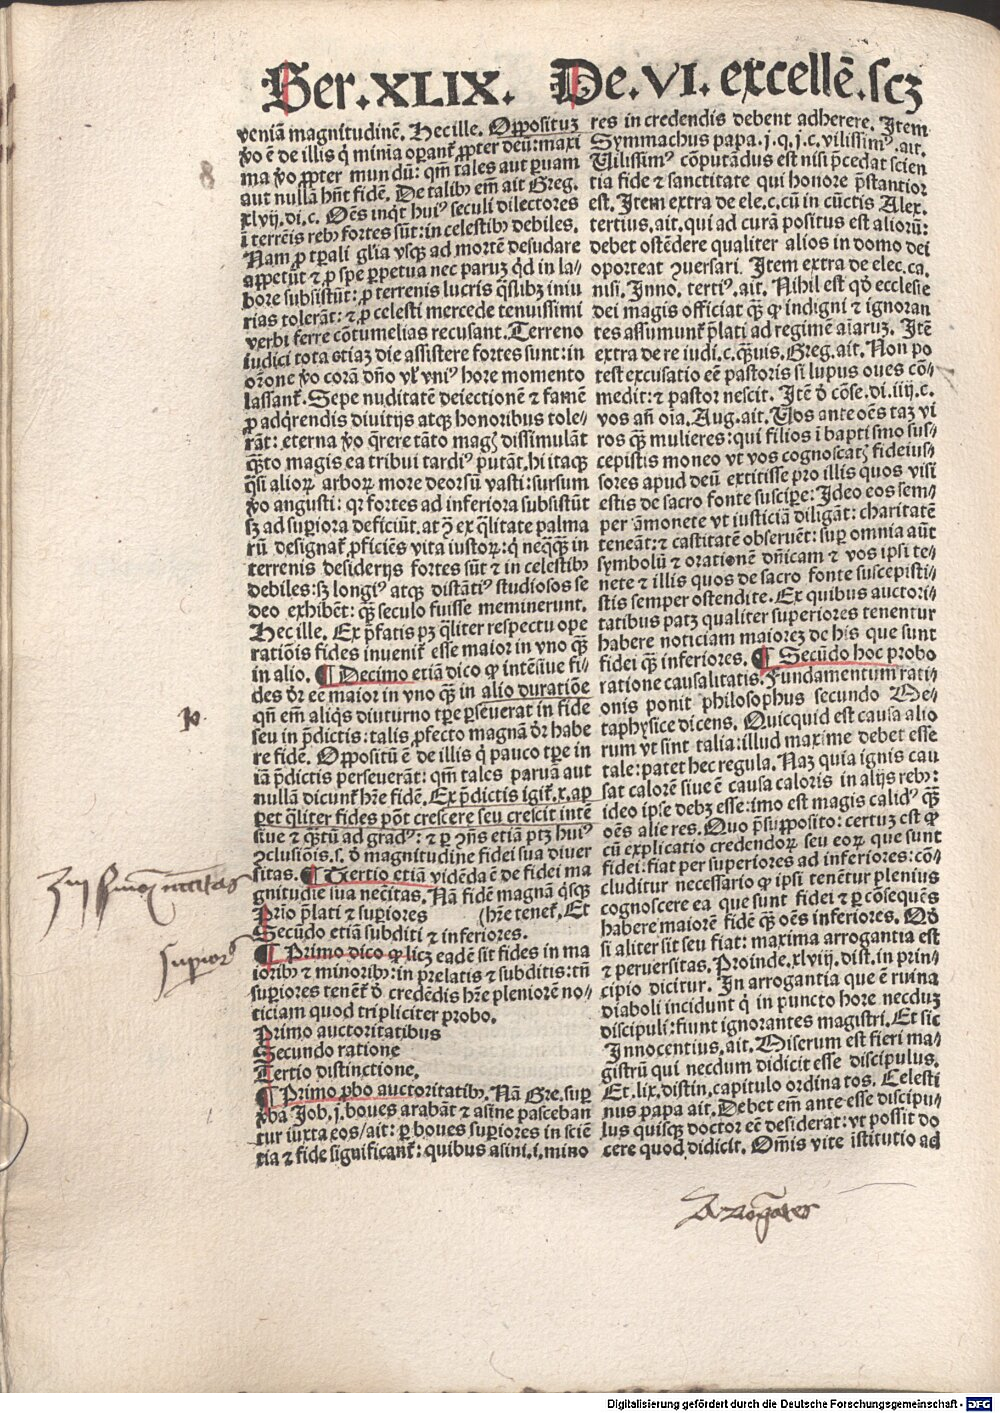 Ser. XLIX. De. VI. excellē. scꝫ
veniā magnitudinē. Hec ille. Opposituꝫ
ꝟo ē de illis q̇ minia oꝑant̉ ꝓpter deū: maxi
ma ꝟo ꝓpter mundū: qm̄ tales aut ꝑuam
aut nullā hn̄t fidē. De talibꝫ em̄ ait Greg.
xlvij. di. c. Oēs inq̇t huiꝰ seculi dilectores
ī terrēis rebꝫ fortes sūt: in celestibꝫ debiles.
Nam ꝓ tꝑali gl̉ia vsqꝫ ad mortē desudare
appetūt ⁊ ꝓ spe ꝑpetua nec paruꝫ q̇d in la⸗
bore subsistūt: ꝓ terrenis lucris q̄slibꝫ iniu
rias tolerāt: ⁊ ꝓ celesti mercede tenuissimi
verbi ferre cōtumelias recusant. Terreno
iudici tota etiaꝫ die assistere fortes sunt: in
or̄one ꝟo corā dn̄o vl̉ vniꝰ hore momento
lassant̉. Sepe nuditatē deiectionē ⁊ famē
ꝓ adq̇rendis diuitijs atqꝫ honoribus tole⸗
rāt: eterna ꝟo q̄rere tāto magꝭ dissimulāt
qꝫ̄to magis ea tribui tardiꝰ putāt. hi itaqꝫ
q̄si alioꝝ arboꝝ more deorsū vasti: sursum
ꝟo angusti: qꝛ fortes ad inferiora subsistūt
sꝫ ad suꝑiora deficiūt. at ꝟ̄o ex q̄litate palma
rū designat̉ ꝓficiēs vita iustoꝝ: q̇ neqꝫ̄qꝫ in
terrenis desiderijs fortes sūt ⁊ in celestibꝫ
debiles: sꝫ longiꝰ atqꝫ distātiꝰ studiosos se
deo exhibēt: qꝫ̄ seculo fuisse meminerunt.
Hec ille. Ex p̄fatis pꝫ q̄liter respectu ope
ratiōis fides inuenit̉ esse maior in vno qꝫ̄
in alio. ¶ Decimo etiā dico ꝙ intēsiue fi⸗
des dr̄ eē maior in vno qꝫ̄ in alio duratiōe
qn̄ em̄ aliq̇s diuturno tꝑe ꝑseuerat in fide
seu in p̄dictis: talis ꝓfecto magnā dr̄ habe
re fidē. Oppositū ē de illis q̇ pauco tꝑe in
iā p̄dictis perseuerāt: qm̄ tales paruā aut
nullā dicunt̉ hr̄e fidē. Ex p̄dictis igit̉. x. ap
ꝑet q̄liter fides pōt crescere seu crescit inte
siue ⁊ qꝫ̄tū ad gradꝰ: ⁊ ꝑ ꝯn̄s etiā ptꝫ huiꝰ
ꝯclusiōis. s. d̉ magnitudine fidei sua diuer
sitas. ¶ Tertio etiā vidēda ē de fidei ma
gnitudie sua nec̄itas. Nā fidē magnā q̇sqꝫ
Prio p̄lati ⁊ suꝑiores (hr̄e tenet̉. Et
Secūdo etiā subditi ⁊ inferiores.
¶ Primo dico ꝙ licꝫ eadē sit fides in ma
ioribꝫ ⁊ minoribꝫ: in prelatis ⁊ subditis: tn̄
suꝑiores tenēt̉ d̉ credēdis hr̄e pleniorē no⸗
ticiam quod tripliciter probo.
Primo auctoritatibus
Secundo ratione
Tertio distinctione.
¶ Primo ꝓbo auctoritatibꝫ. Nā Gre. suꝑ
ꝟba Job. j. boues arabāt ⁊ asine pasceban
tur iuxta eos/ ait: ꝑ boues suꝑiores in sciē
tia ⁊ fide significant̉: quibus asini. i. mino
res in credendis debent adherere. Item
Symmachus papa. j. q. j. c. vilissimꝰ. ait.
Vilissimꝰ cōputādus est nisi p̄cedat scien
tia fide ⁊ sanctitate qui honore p̄stantior
est. Item extra de ele. c. cū in cūctis Alex.
tertius. ait. qui ad curā positus est alioruꝫ:
debet ostēdere qualiter alios in domo dei
oporteat ꝯuersari. Item extra de elec. ca.
nisi. Inno. tertiꝰ. ait. Nihil est qd̉ ecclesie
dei magis officiat qꝫ̄ ꝙ indigni ⁊ ignoran
tes assumunt̉ p̄lati ad regimē aīaruꝫ. Itē
extra de re iudi. c. qꝫ̄uis. Greg. ait. Non po
test excusatio eē pastoris si lupus oues cō⸗
medit: ⁊ pastor nescit. Itē d̉ cōse. di. iiij. c.
vos an̄ oīa. Aug. ait. Vos ante oēs taꝫ vi
ros qꝫ̄ mulieres: qui filios ī baptismo sus⸗
cepistis moneo vt vos cognoscatꝭ fideius⸗
sores apud deū extitisse pro illis quos visi
estis de sacro fonte suscipe: Ideo eos sem⸗
per āmonete vt iusticiā diligāt: charitatē
teneāt: ⁊ castitatē obseruēt: suꝑ omnia aūt
symbolū ⁊ orationē dn̄icam ⁊ vos ipsi te⸗
nete ⁊ illis quos de sacro fonte suscepisti⸗
stis semper ostendite. Ex quibus auctori⸗
tatibus patꝫ qualiter superiores tenentur
habere noticiam maioreꝫ de his que sunt
fidei qꝫ̄ inferiores. ¶ Secūdo hoc probo
ratione causalitatis. Fundamentum rati⸗
onis ponit philosophus secundo Me⸗
taphysice dicens. Quicquid est causa alio
rum vt sint talia: illud maxime debet esse
tale: patet hec regula. Naꝫ quia ignis cau
sat calorē siue ē causa caloris in alijs rebꝫ:
ideo ipse debꝫ esse: imo est magis calidꝰ qꝫ̄
oēs alie res. Quo p̄supposito: certuꝫ est ꝙ
cū explicatio credendoꝝ seu eoꝝ que sunt
fidei: fiat per superiores ad inferiores: cō⸗
cluditur necessario ꝙ ipsi tenētur plenius
cognoscere ea que sunt fidei ⁊ ꝑ cōsequēs
habere maiorē fidē qꝫ̄ oēs inferiores. Qd̉
si aliter sit seu fiat: maxima arrogantia est
⁊ peruersitas. Proinde. xlviij. dist. in prin⸗
cipio dicitur. In arrogantia que ē ruina
diaboli incidunt q̇ in puncto hore necduꝫ
discipuli: fiunt ignorantes magistri. Et sic
Innocentius. ait. Miserum est fieri ma⸗
gistrū qui necdum didicit esse discipulus.
Et. lix. distin. capitulo ordinatos. Celesti
nus papa ait. Debet em̄ ante esse discipu⸗
lus quisqꝫ doctor eē desiderat: vt possit do
cere quod didicit. Om̄is vite istitutio ad
8
superiorꝭ
Arrogātes
Digitalisierung gefördert durch die Deutsche Forschungsgemeinschaft - DFG